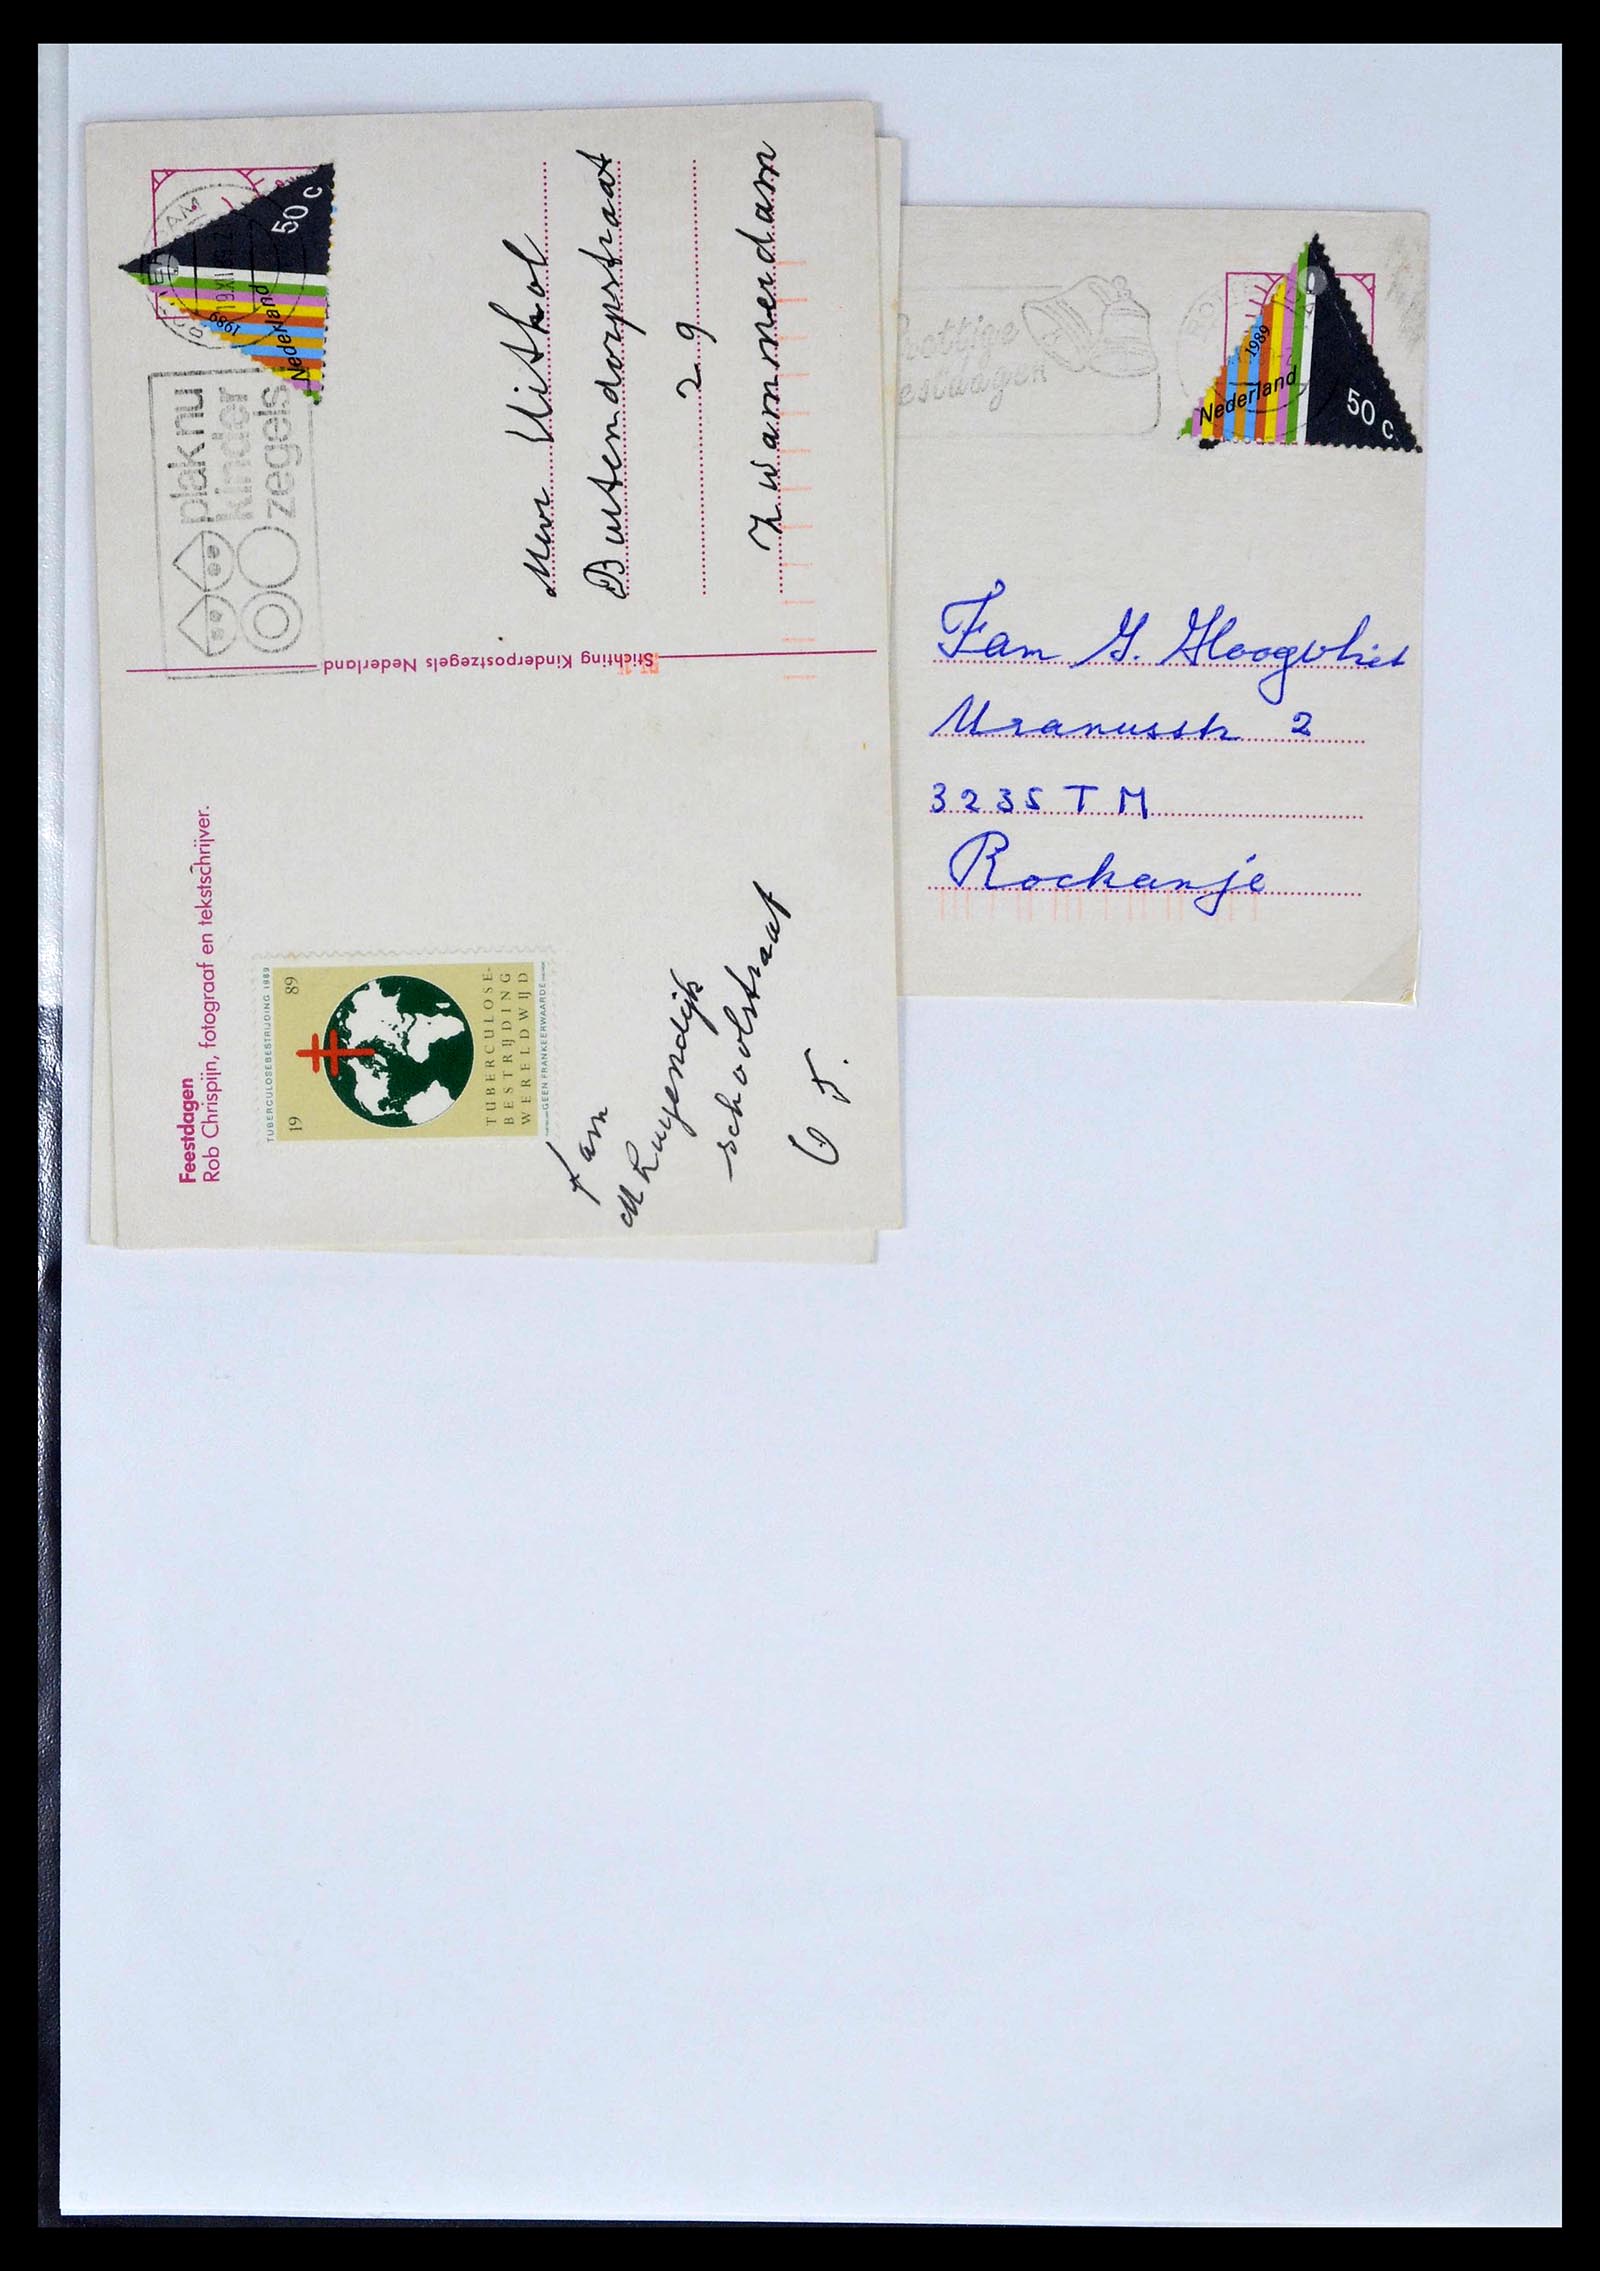 50 c
Nederland
1989
plak nu
kinder
zegels
Mevr Uithol
Buitendorpstraat
29
Zwammerdam
Stichting Kinderpostzegels Nederland
Feestdagen
Rob Chrispijn, fotograaf en tekstschrijver.
TUBERCULOSEBESTRIJDING 1989
19 89
TUBERCULOSE-
BESTRIJDING
WERELDWIJD
GEEN FRANKEERWAARDE
Fam
schoolstraat
Nederland
1989
50 c
Fam G. Hoogvliet
Uranusstr 2
3235 TM
Rockanje